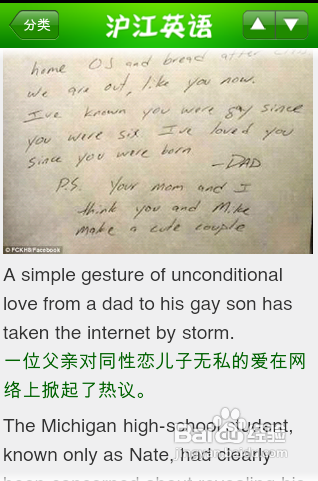 分类
沪江英语
home OJ and bread after
We are out, like you now.
I've known you were gay since
you were six I've loved you
since you were born
-DAD
P.S. Your mom and I
think you and Mike
make a cute couple
© FCKH8/Facebook
A simple gesture of unconditional
love from a dad to his gay son has
taken the internet by storm.
一位父亲对同性恋儿子无私的爱在网
络上掀起了热议。
The Michigan high-school student,
known only as Nate, had clearly
been concerned about revealing his
Baidu经验
jingyan.baidu.com